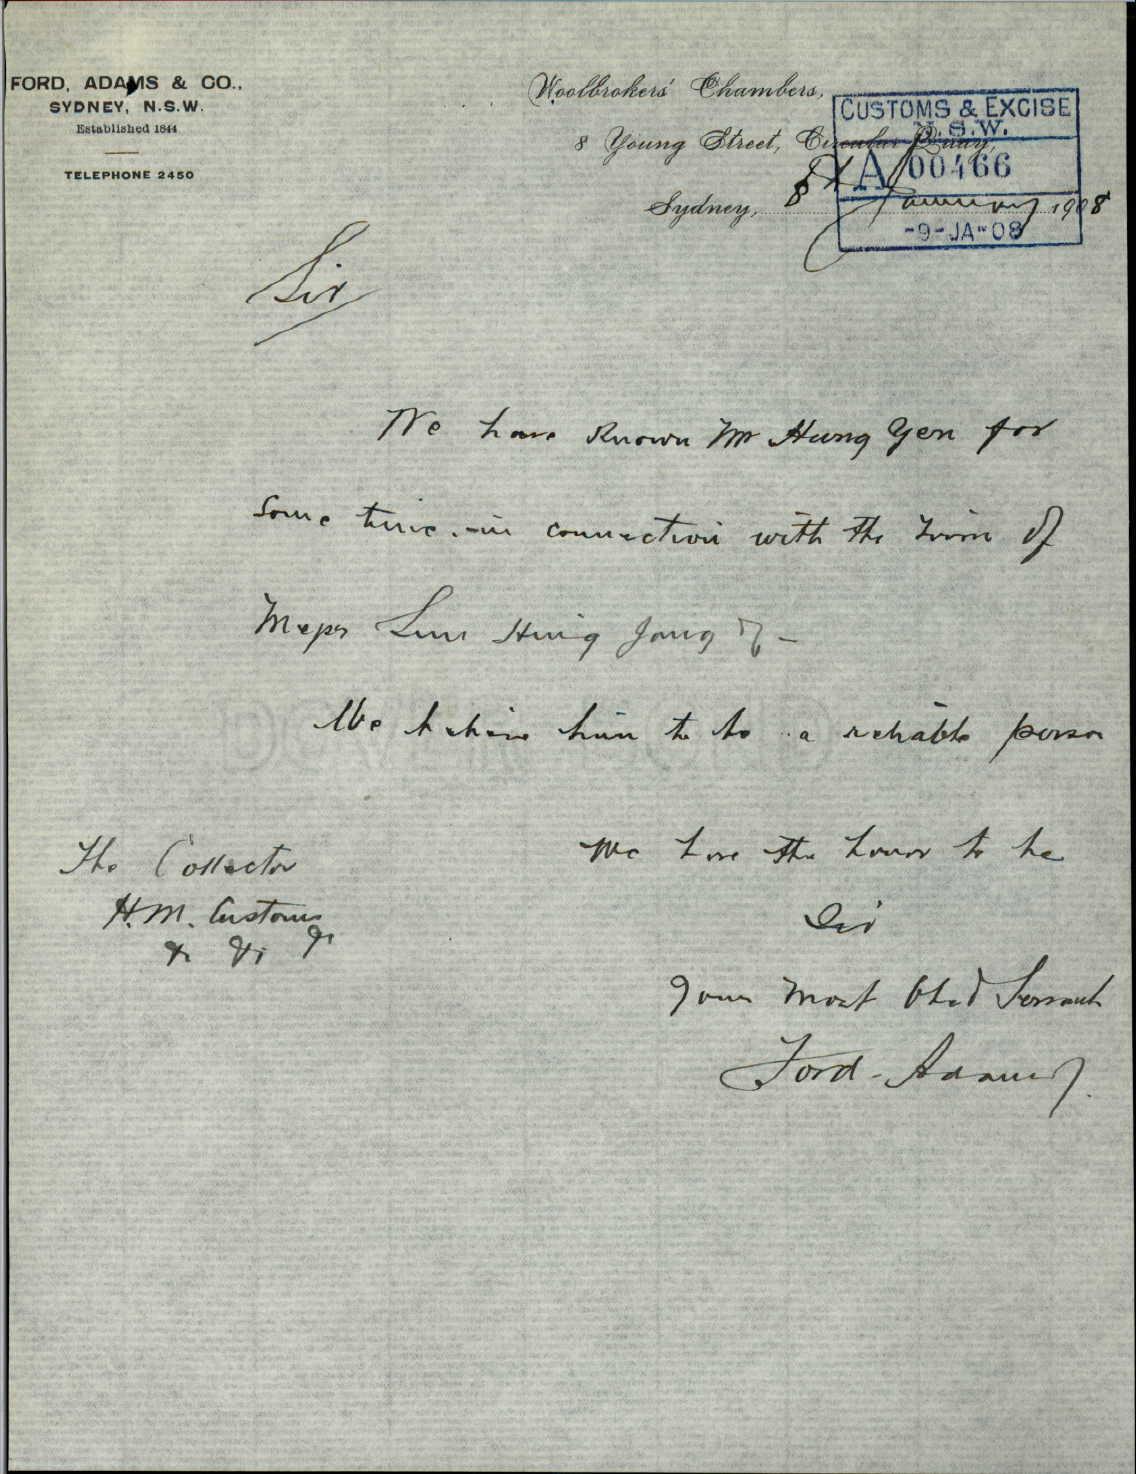 FORD, ADAMS & CO.,
SYDNEY, N.S.W.
Established 1844
TELEPHONE 2450
Woolbrokers' Chambers,
8 Young Street, Circular Quay,
Sydney, 8 January 1908
CUSTOMS & EXCISE
N.S.W.
A 00466
-9-JA-08
Sir
We have known Mr Hung Yen for
some time in connection with the firm of
Messrs Sun Hing Jang
We believe him to be a reliable person
We have the honor to be
Sir
Your most Obed Servants
Ford Adams
The Collector
H.M. Customs
&c &c &c